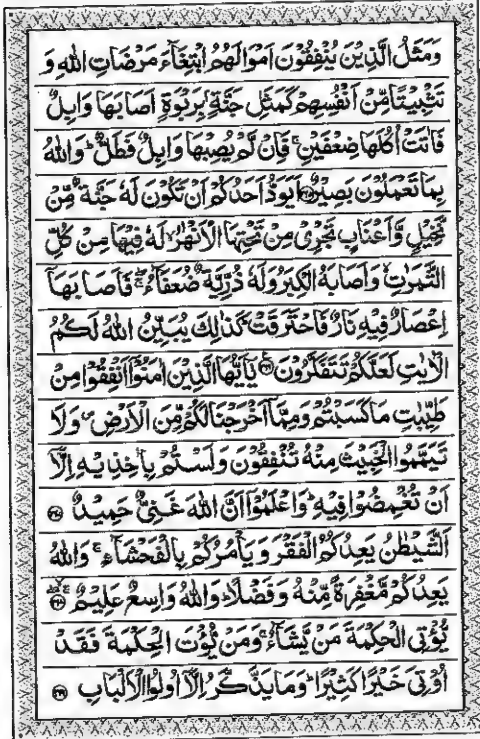 وَمَثَلُ الَّذِيْنَ يُنْفِقُوْنَ اَمْوَالَهُمُ ابْتِغَآءَ مَرْضَاتِ اللّٰهِ وَ
تَثْبِيْتًا مِّنْ اَنْفُسِهِمْ كَمَثَلِ جَنَّةٍۭ بِرَبْوَةٍ اَصَابَهَا وَابِلٌ
فَاٰتَتْ اُكُلَهَا ضِعْفَيْنِ ۚ فَاِنْ لَّمْ يُصِبْهَا وَابِلٌ فَطَلٌّ ؕ وَاللّٰهُ
بِمَا تَعْمَلُوْنَ بَصِيْرٌ ﴿۲۶۵﴾ اَيَوَدُّ اَحَدُكُمْ اَنْ تَكُوْنَ لَهٗ جَنَّةٌ مِّنْ
نَّخِيْلٍ وَّاَعْنَابٍ تَجْرِيْ مِنْ تَحْتِهَا الْاَنْهٰرُ ۙ لَهٗ فِيْهَا مِنْ كُلِّ
الثَّمَرٰتِ ۙ وَاَصَابَهُ الْكِبَرُ وَلَهٗ ذُرِّيَّةٌ ضُعَفَآءُ ۖ فَاَصَابَهَآ
اِعْصَارٌ فِيْهِ نَارٌ فَاحْتَرَقَتْ ؕ كَذٰلِكَ يُبَيِّنُ اللّٰهُ لَكُمُ
الْاٰيٰتِ لَعَلَّكُمْ تَتَفَكَّرُوْنَ ﴿۲۶۶﴾ يٰۤاَيُّهَا الَّذِيْنَ اٰمَنُوْۤا اَنْفِقُوْا مِنْ
طَيِّبٰتِ مَا كَسَبْتُمْ وَمِمَّاۤ اَخْرَجْنَا لَكُمْ مِّنَ الْاَرْضِ ۪ وَلَا
تَيَمَّمُوا الْخَبِيْثَ مِنْهُ تُنْفِقُوْنَ وَلَسْتُمْ بِاٰخِذِيْهِ اِلَّاۤ
اَنْ تُغْمِضُوْا فِيْهِ ؕ وَاعْلَمُوْۤا اَنَّ اللّٰهَ غَنِيٌّ حَمِيْدٌ ﴿۲۶۷﴾
اَلشَّيْطٰنُ يَعِدُكُمُ الْفَقْرَ وَيَاْمُرُكُمْ بِالْفَحْشَآءِ ۚ وَاللّٰهُ
يَعِدُكُمْ مَّغْفِرَةً مِّنْهُ وَفَضْلًا ؕ وَاللّٰهُ وَاسِعٌ عَلِيْمٌ ﴿۲۶۸﴾
يُّؤْتِي الْحِكْمَةَ مَنْ يَّشَآءُ ۚ وَمَنْ يُّؤْتَ الْحِكْمَةَ فَقَدْ
اُوْتِيَ خَيْرًا كَثِيْرًا ؕ وَمَا يَذَّكَّرُ اِلَّاۤ اُولُوا الْاَلْبَابِ ﴿۲۶۹﴾